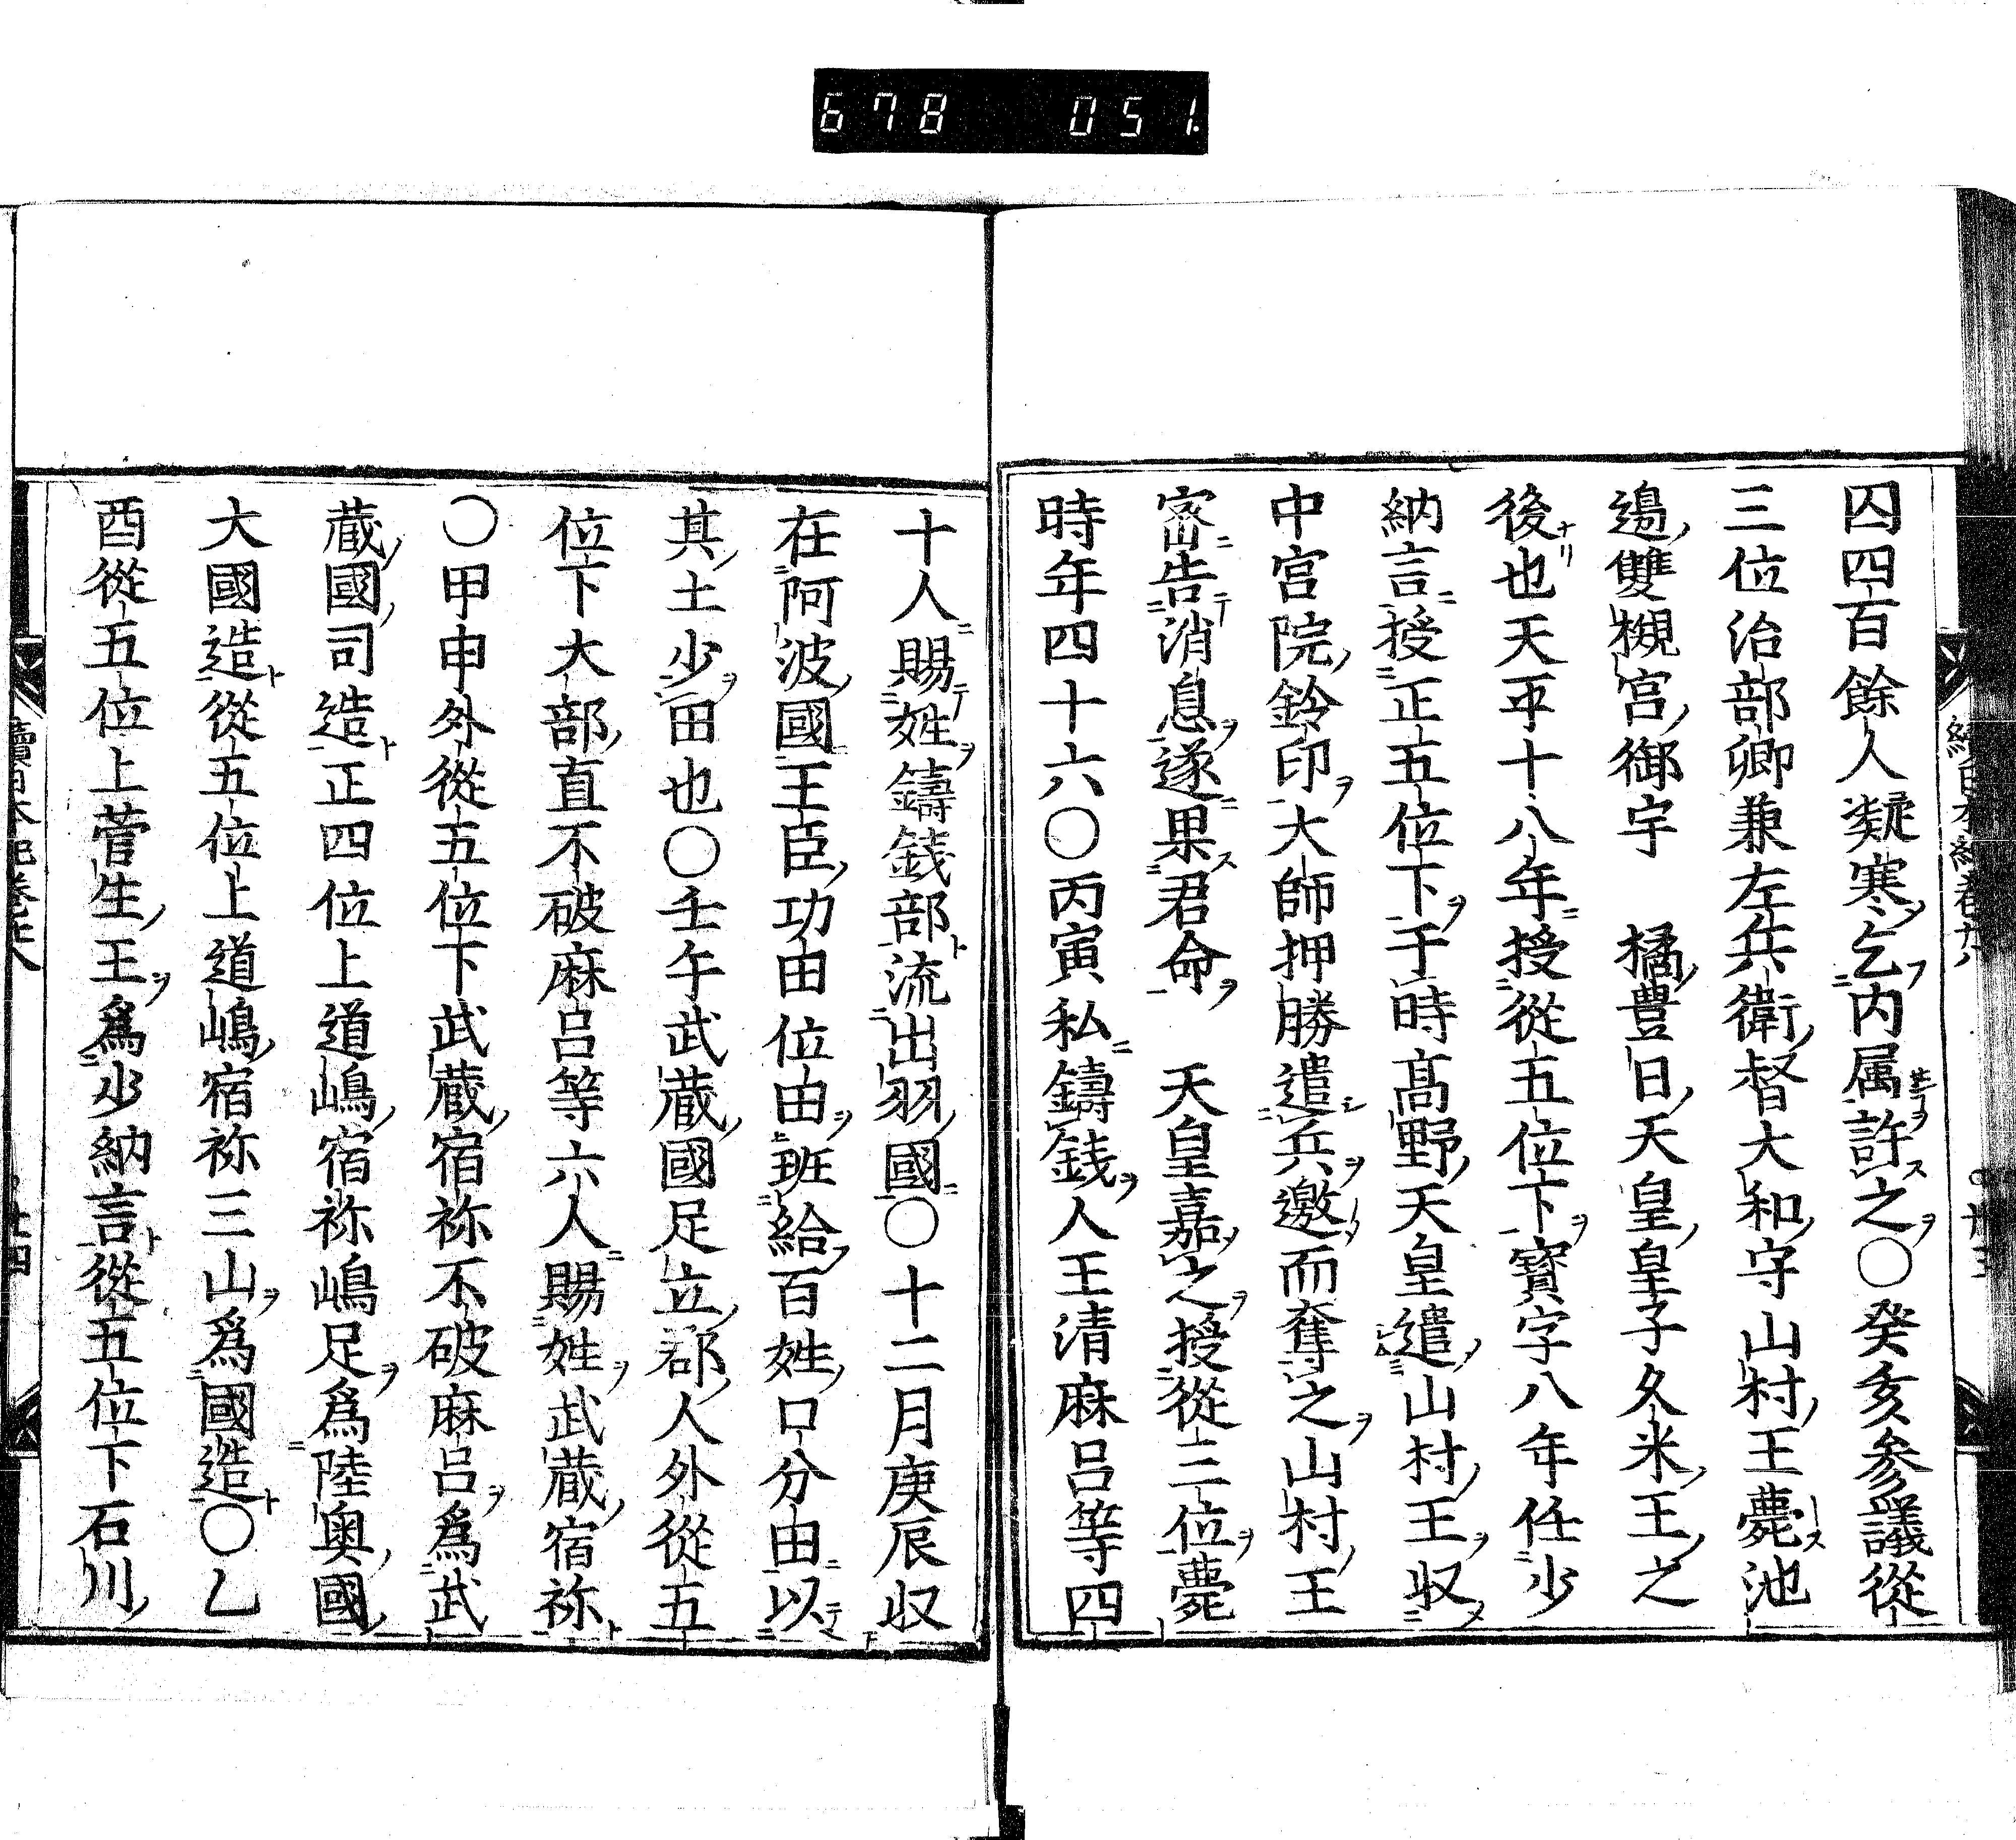 678 051.
囚四百餘人凝寒乞内属許之〇癸亥参議從
三位治部卿兼左兵衛督大和守山村王薨池
邊雙槻宮御宇 橘豊日天皇皇子久米王之
後也天平十八年授從五位下寳字八年任少
納言授正五位下于時髙野天皇遣山村王収
中宮院鈴印大師押勝遣兵邀而奪之山村王
密告消息遂果君命 天皇嘉之授從三位薨
時年四十六〇丙寅私鑄銭人王清麻呂等四
十人賜姓鑄銭部流出羽國〇十二月庚辰収
在阿波國王臣功由位由班給百姓口分由以
其土少田也〇壬午武蔵國足立郡人外從五
位下大部直不破麻呂等六人賜姓武蔵宿祢
〇甲申外從五位下武蔵宿祢不破麻呂爲武
蔵國司造正四位上道嶋宿祢嶋足爲陸奥國
大國造從五位上道嶋宿祢三山爲國造〇乙
酉從五位上菅生王爲少納言從五位下石川